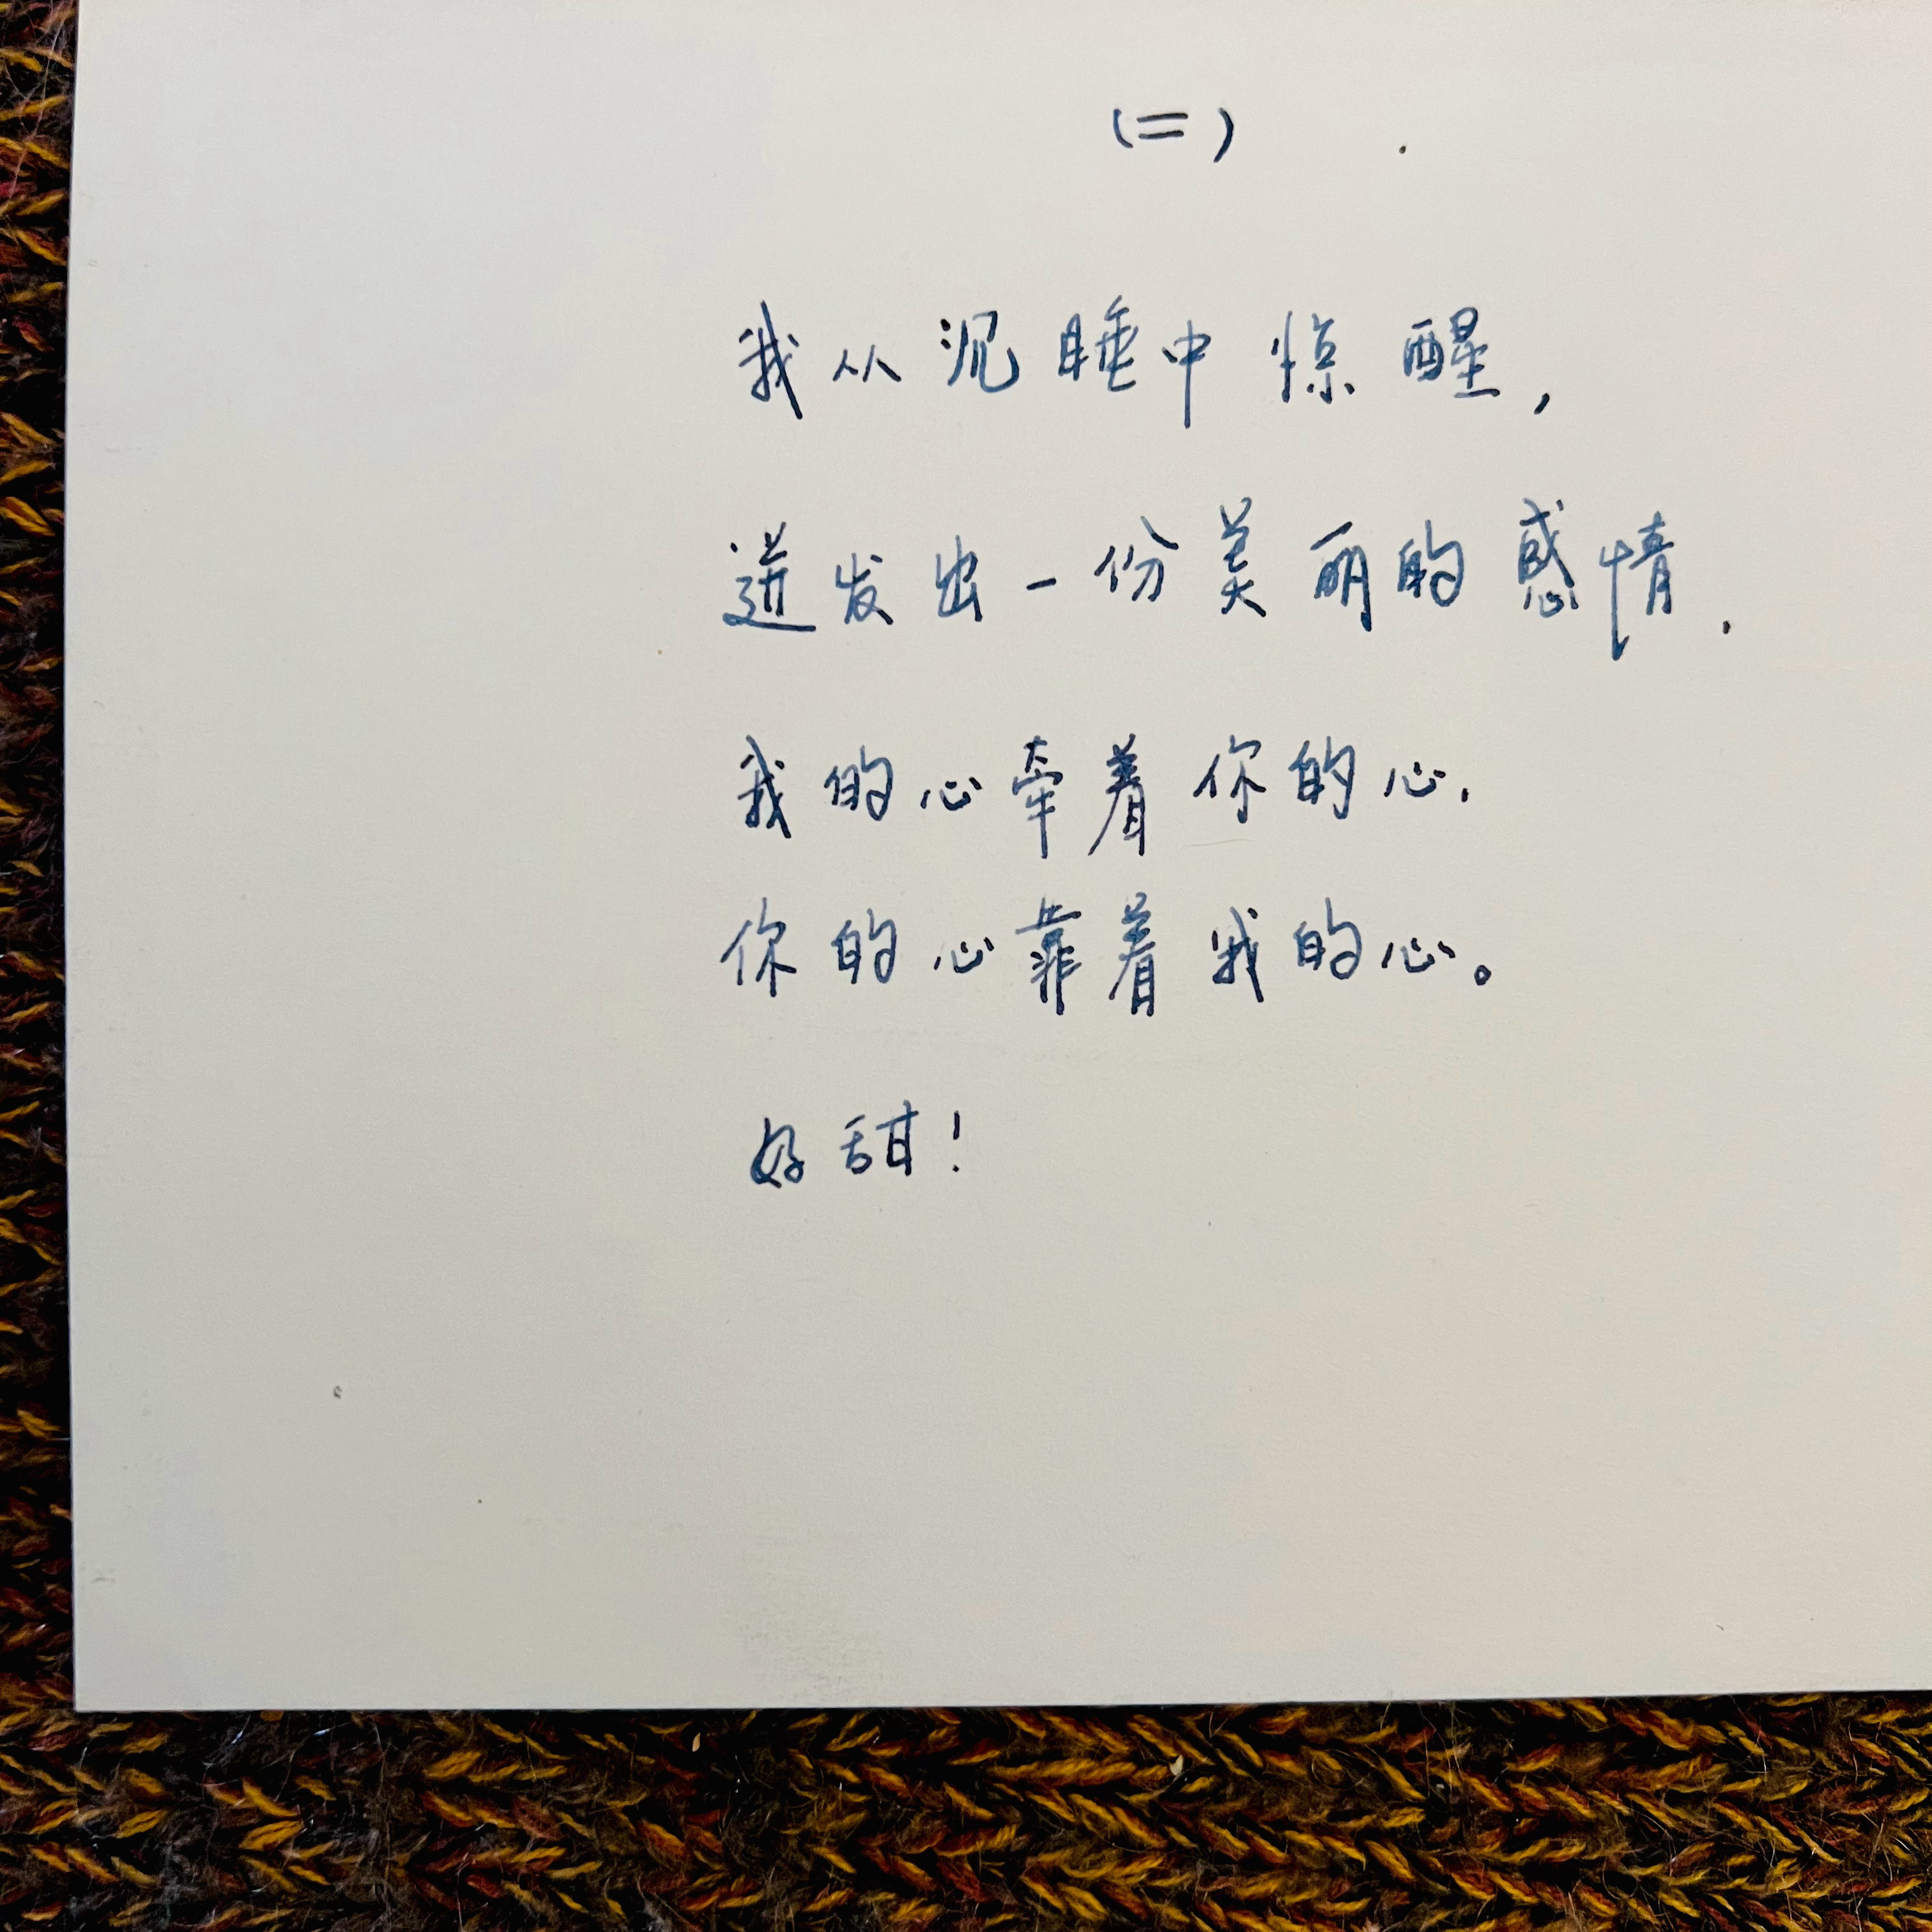 (二)
我从沉睡中惊醒,
迸发出一份美丽的感情.
我的心牵着你的心.
你的心靠着我的心。
好甜!